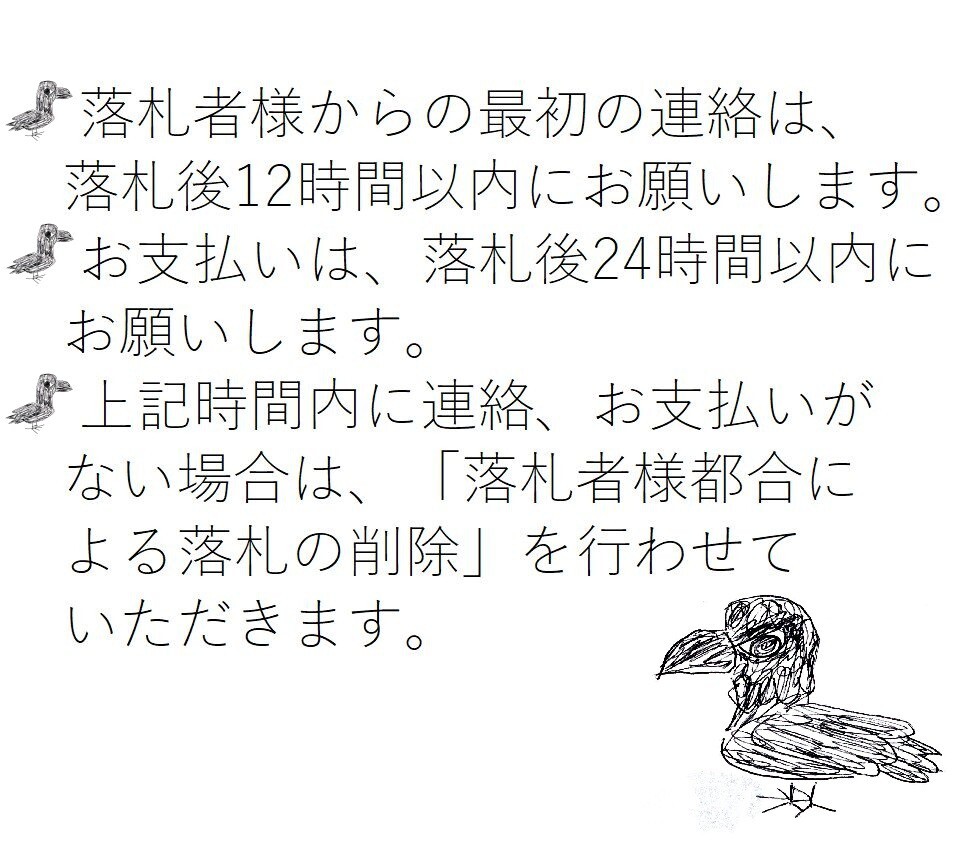 落札者様からの最初の連絡は、
落札後12時間以内にお願いします。
お支払いは、落札後24時間以内に
お願いします。
上記時間内に連絡、お支払いが
ない場合は、「落札者様都合に
よる落札の削除」を行わせて
いただきます。